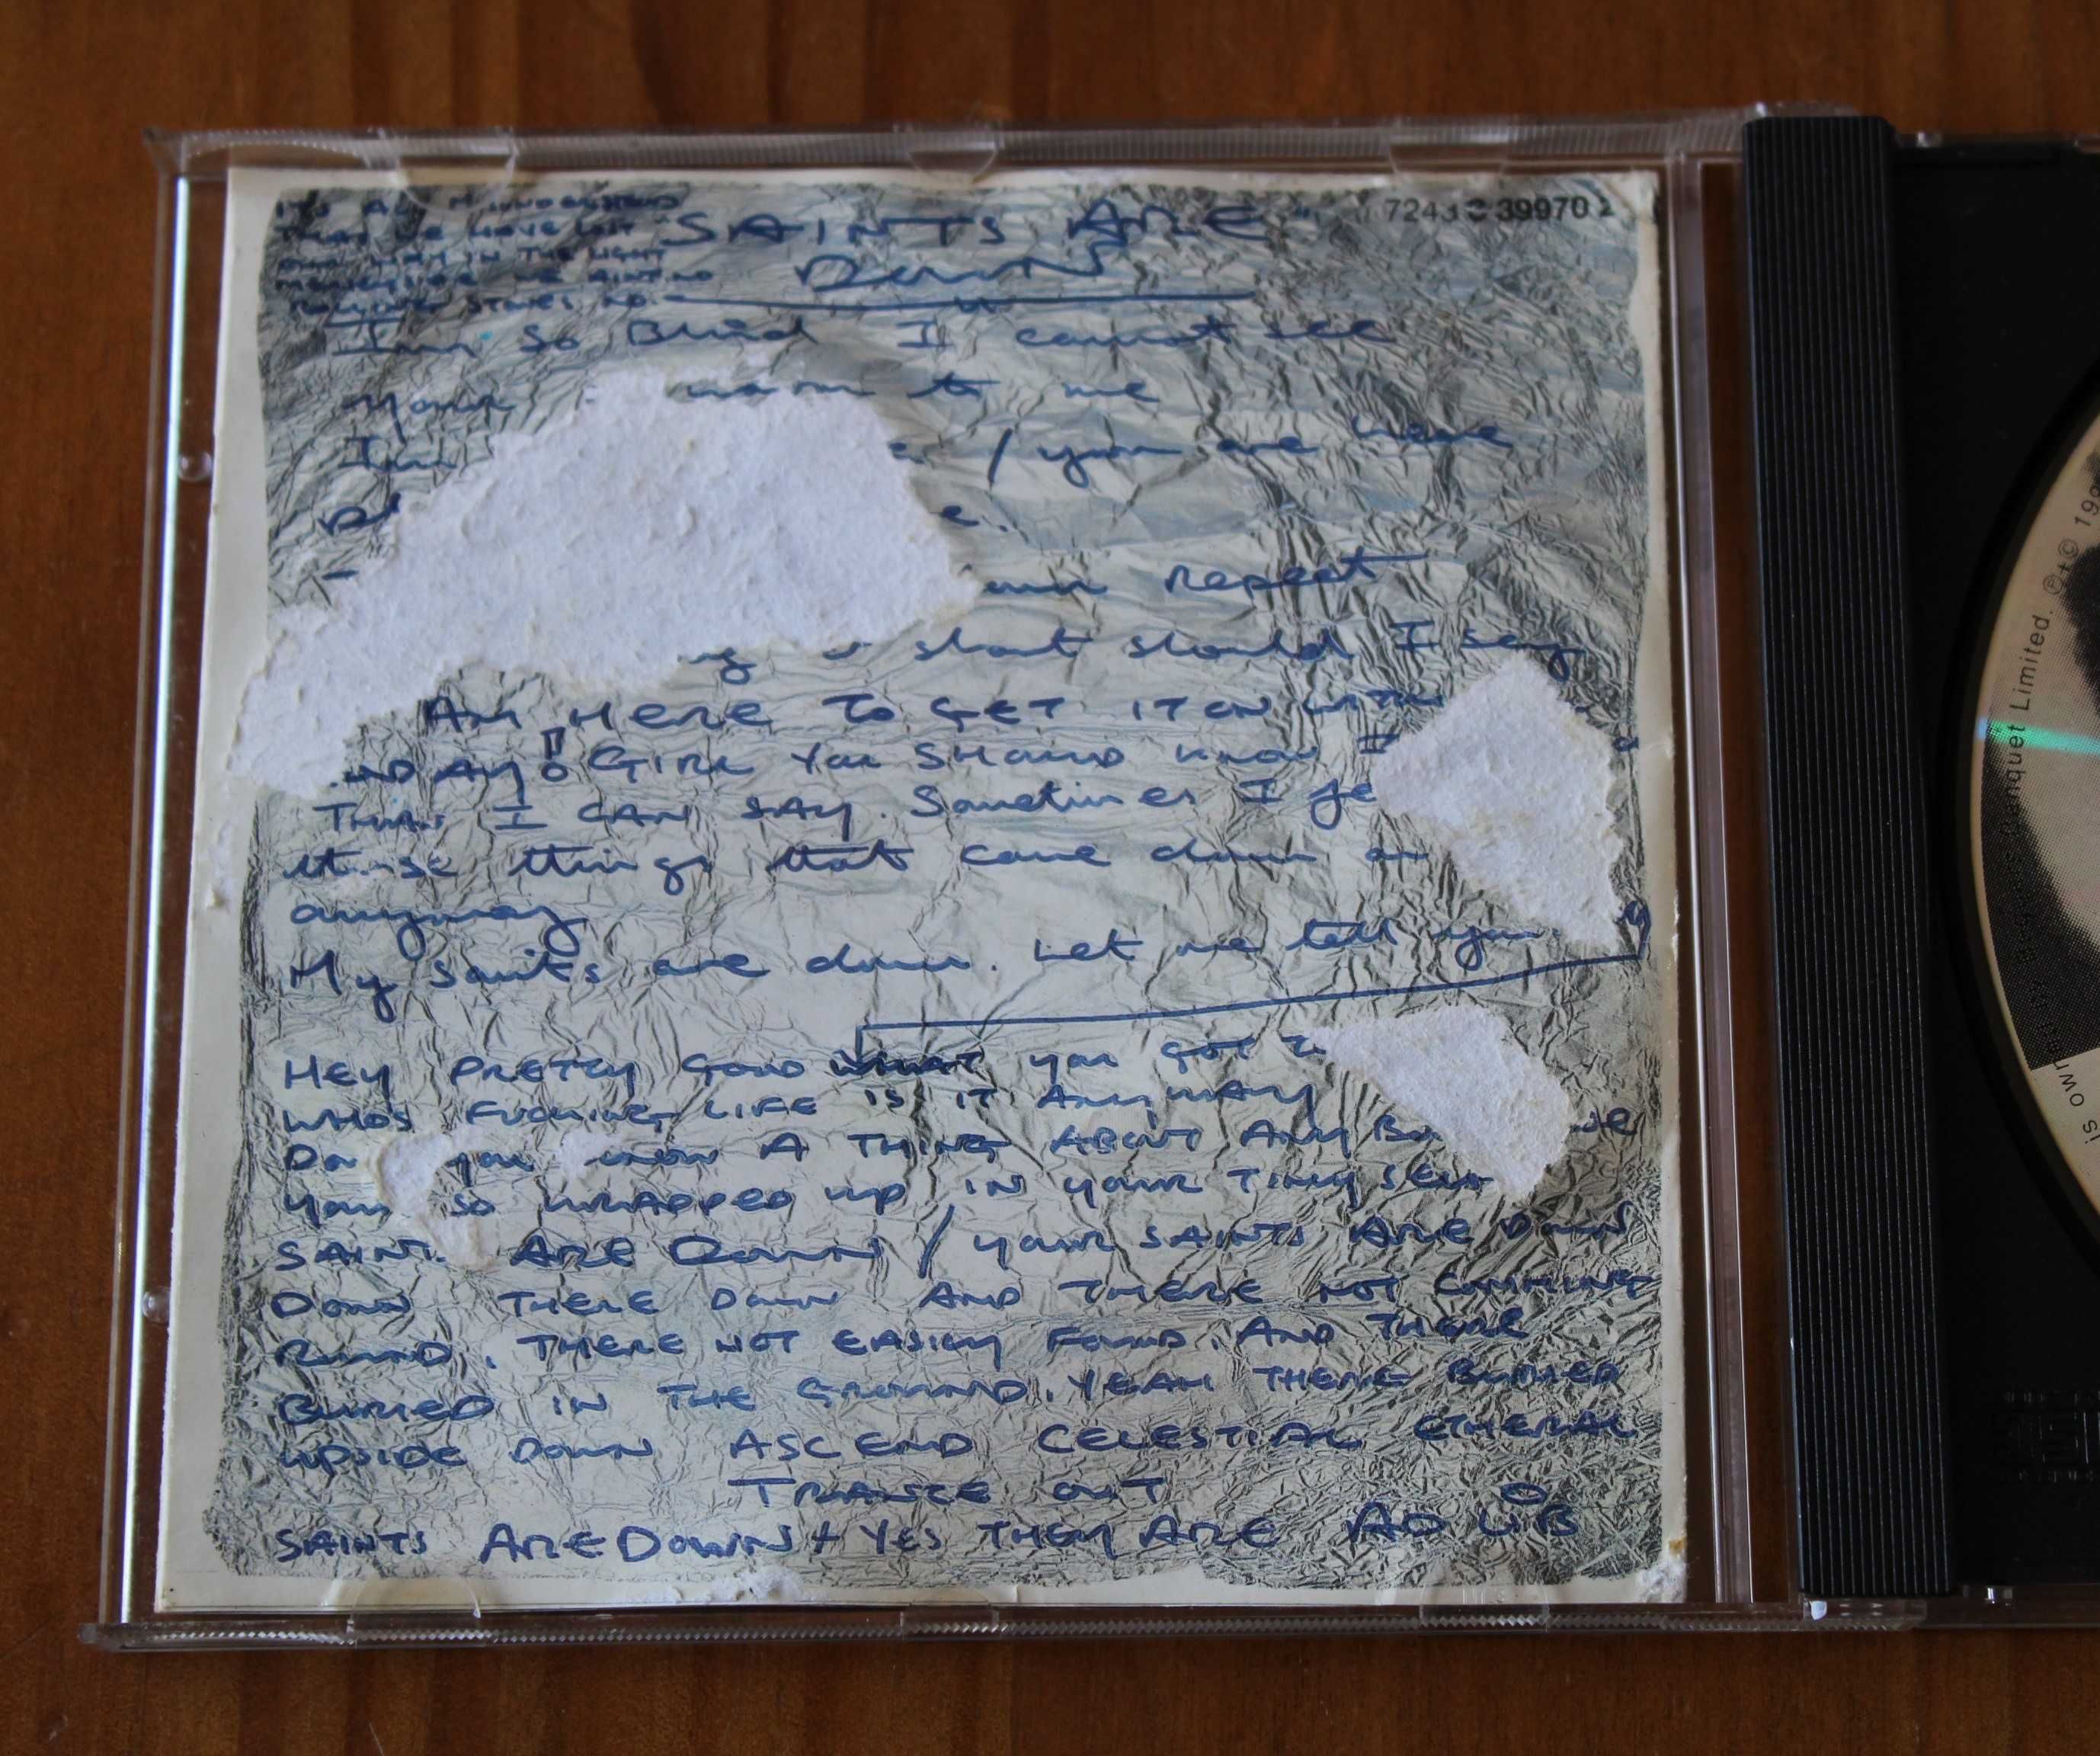 IT'S ALL MISUNDERSTOOD
THAT WE HAVE LOST
OUR WAY IN THE NIGHT
WE AINT NO
ROLLING STONES NO.
"SAINTS ARE"
DOWN
7243 8 39970 2
I'm so Blind I cannot see
Your to me
I'm / you are here
e.
repeat
shout should I say
AM HERE TO GET IT ON WITH
AY! GIRL YOU SHOULD KNOW
THAN I CAN SAY. Sometimes I fe
these things that come down on
anyway
My saints are down. Let me tell you
HEY PRETTY GOOD WHAT you GOT
WHOS FUCKING LIFE IS IT ANYWAY
DO you KNOW A THING ABOUT ANY BO
YOUR SO WRAPPED UP IN YOUR TINY SELF
SAINTS ARE DOWN / YOUR SAINTS ARE DOWN
DOWN THERE DOWN AND THERE NOT COMMING
ROUND. THERE NOT EASILY FOUND. AND THERE
BURIED IN THE GROUND. YEAH THERE BURIED
UPSIDE DOWN ASCEND CELESTIAL ETHERAL
TRANCE OUT
SAINTS ARE DOWN + YES THEY ARE AD LIB
Banquet Limited. ℗+©
is owned by